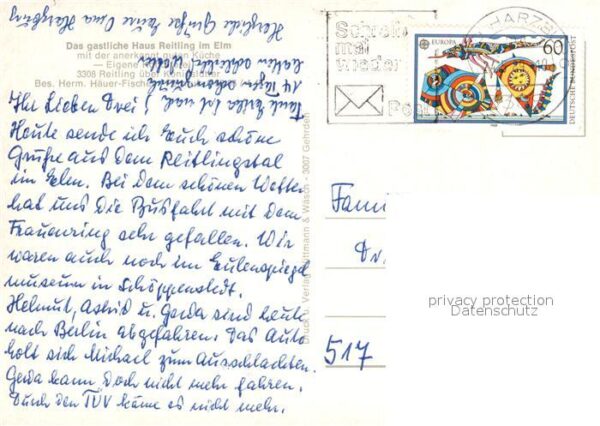 Das gastliche Haus Reitling im Elm
mit der anerkannt guten Küche
— Eigene
3308 Reitling über Königslutter
Bes. Herm. Häuer-Fisch
Ihr Lieben Drei!
Heute sende ich Euch schöne
Grüße aus dem Reitlingstal
im Elm. Bei dem schönen Wetter
hat uns die Busfahrt mit dem
Frauenring sehr gefallen. Wir
waren auch noch im Eulenspiegel
museum in Schöppenstedt.
Helmut, Astrid u. Gerda sind heute
nach Berlin abgefahren. Das Auto
holt sich Michael zum Ausschlachten.
Gerda kann doch nicht mehr fahren.
Durch den TÜV käme es nicht mehr.
Herzliche Grüße Eure Oma
14 Tagen
Druck u. Verlag & Wasch - 3007 Gehrden
Schreib
mal
wieder
Post
HARZB
EUROPA
60
DEUTSCHE BUNDESPOST
Fami
Dr.
517
privacy protection
Datenschutz